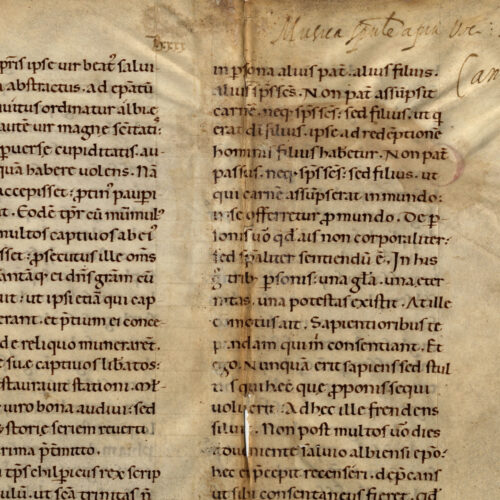 Musica
p̄ris ipse vir beat' salvi
abstractus. ad ep̄atū
vitus ordinatur albie
autē vir magne sc̄itati:
pverse cupiditatis. au
quā habere volens. Nā
accepisset: protin' paupi
t. Eodē tp̄r eū mūmul'
multos captivos ab ei'
sset: psecutus ille om̄s
antāq; ei dn̄s gr̄am cū
uit: ut ipsi etiā qui cap
erant. et p̄tium ei conce
de reliquo munerarent.
e suę captivos libatos:
staurauit stationi. M̄l
viro bona audivi: sed
storię seriem reverti
rima p̄mitto.
tp̄s chilpicus rex scrip
ulū. ut sc̄a trinitas n̄
in psona alius pat̄. alius filius.
alius sp̄s sc̄s. Non pat̄ assūpsit
carnē. neq; sp̄s sc̄s: sed filius. ut q
erat dī filius. ipse ad redēptionē
hominī filius habetur. Non pat̄
passus. neq; sp̄s sc̄s: sed filius. ut
qui carnē assūpserat in mundo:
ipse offerretur p mundo. De p
sonis vo qd ais non corporaliter:
sed sp̄aliter sentiendū ē. In his
g trib; psonis: una gl̄a. una eter
nitas. una potestas existit. At ille
cōmotus ait. Sapientioribus te
pandam qui m̄ consentiant. Et
ego. Nunquā erit sapiens sed stul
tus qui hęc quę pponis sequi
voluerit. Ad hęc ille frendens
siluit. Non post multos vo dies
adveniente salvio albiensi ep̄o:
hęc ei p̄cepit recenseri. dep̄cans
ut sibi consentaneus fieret. qd